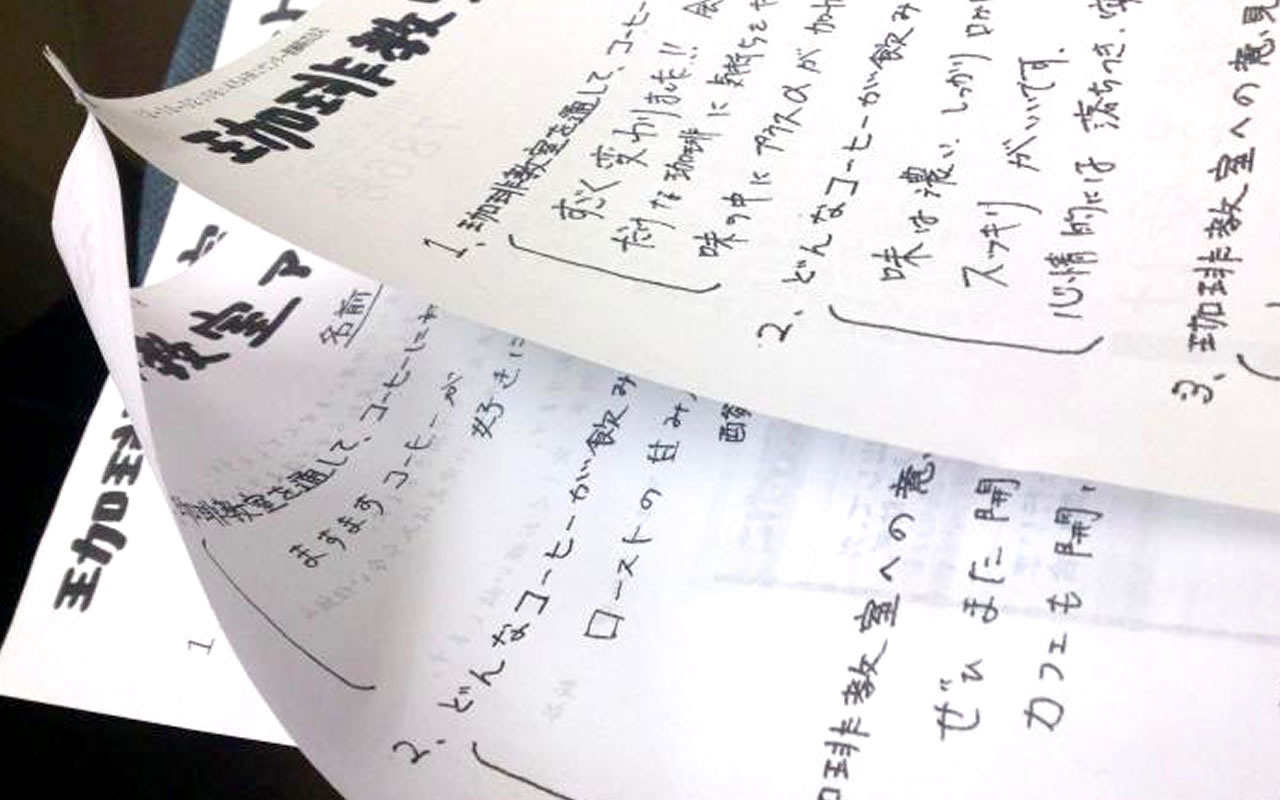 珈琲教
1、珈琲教室を通して、コーヒー
すごく変わりました!!
だけな珈琲に気持ちを
味の中にプラスαが加
2、どんなコーヒーが飲み
味は濃い、しっかり
スッキリがいいです。
心情的には落ちつき、
3、珈琲教室への意見
教室ア
名前
教室を通して、コーヒーに
ますますコーヒーが
好きに
2、どんなコーヒーが飲み
ローストの甘み
酸
珈琲教室への意
ぜひまた開
カフェも開
珈琲
1